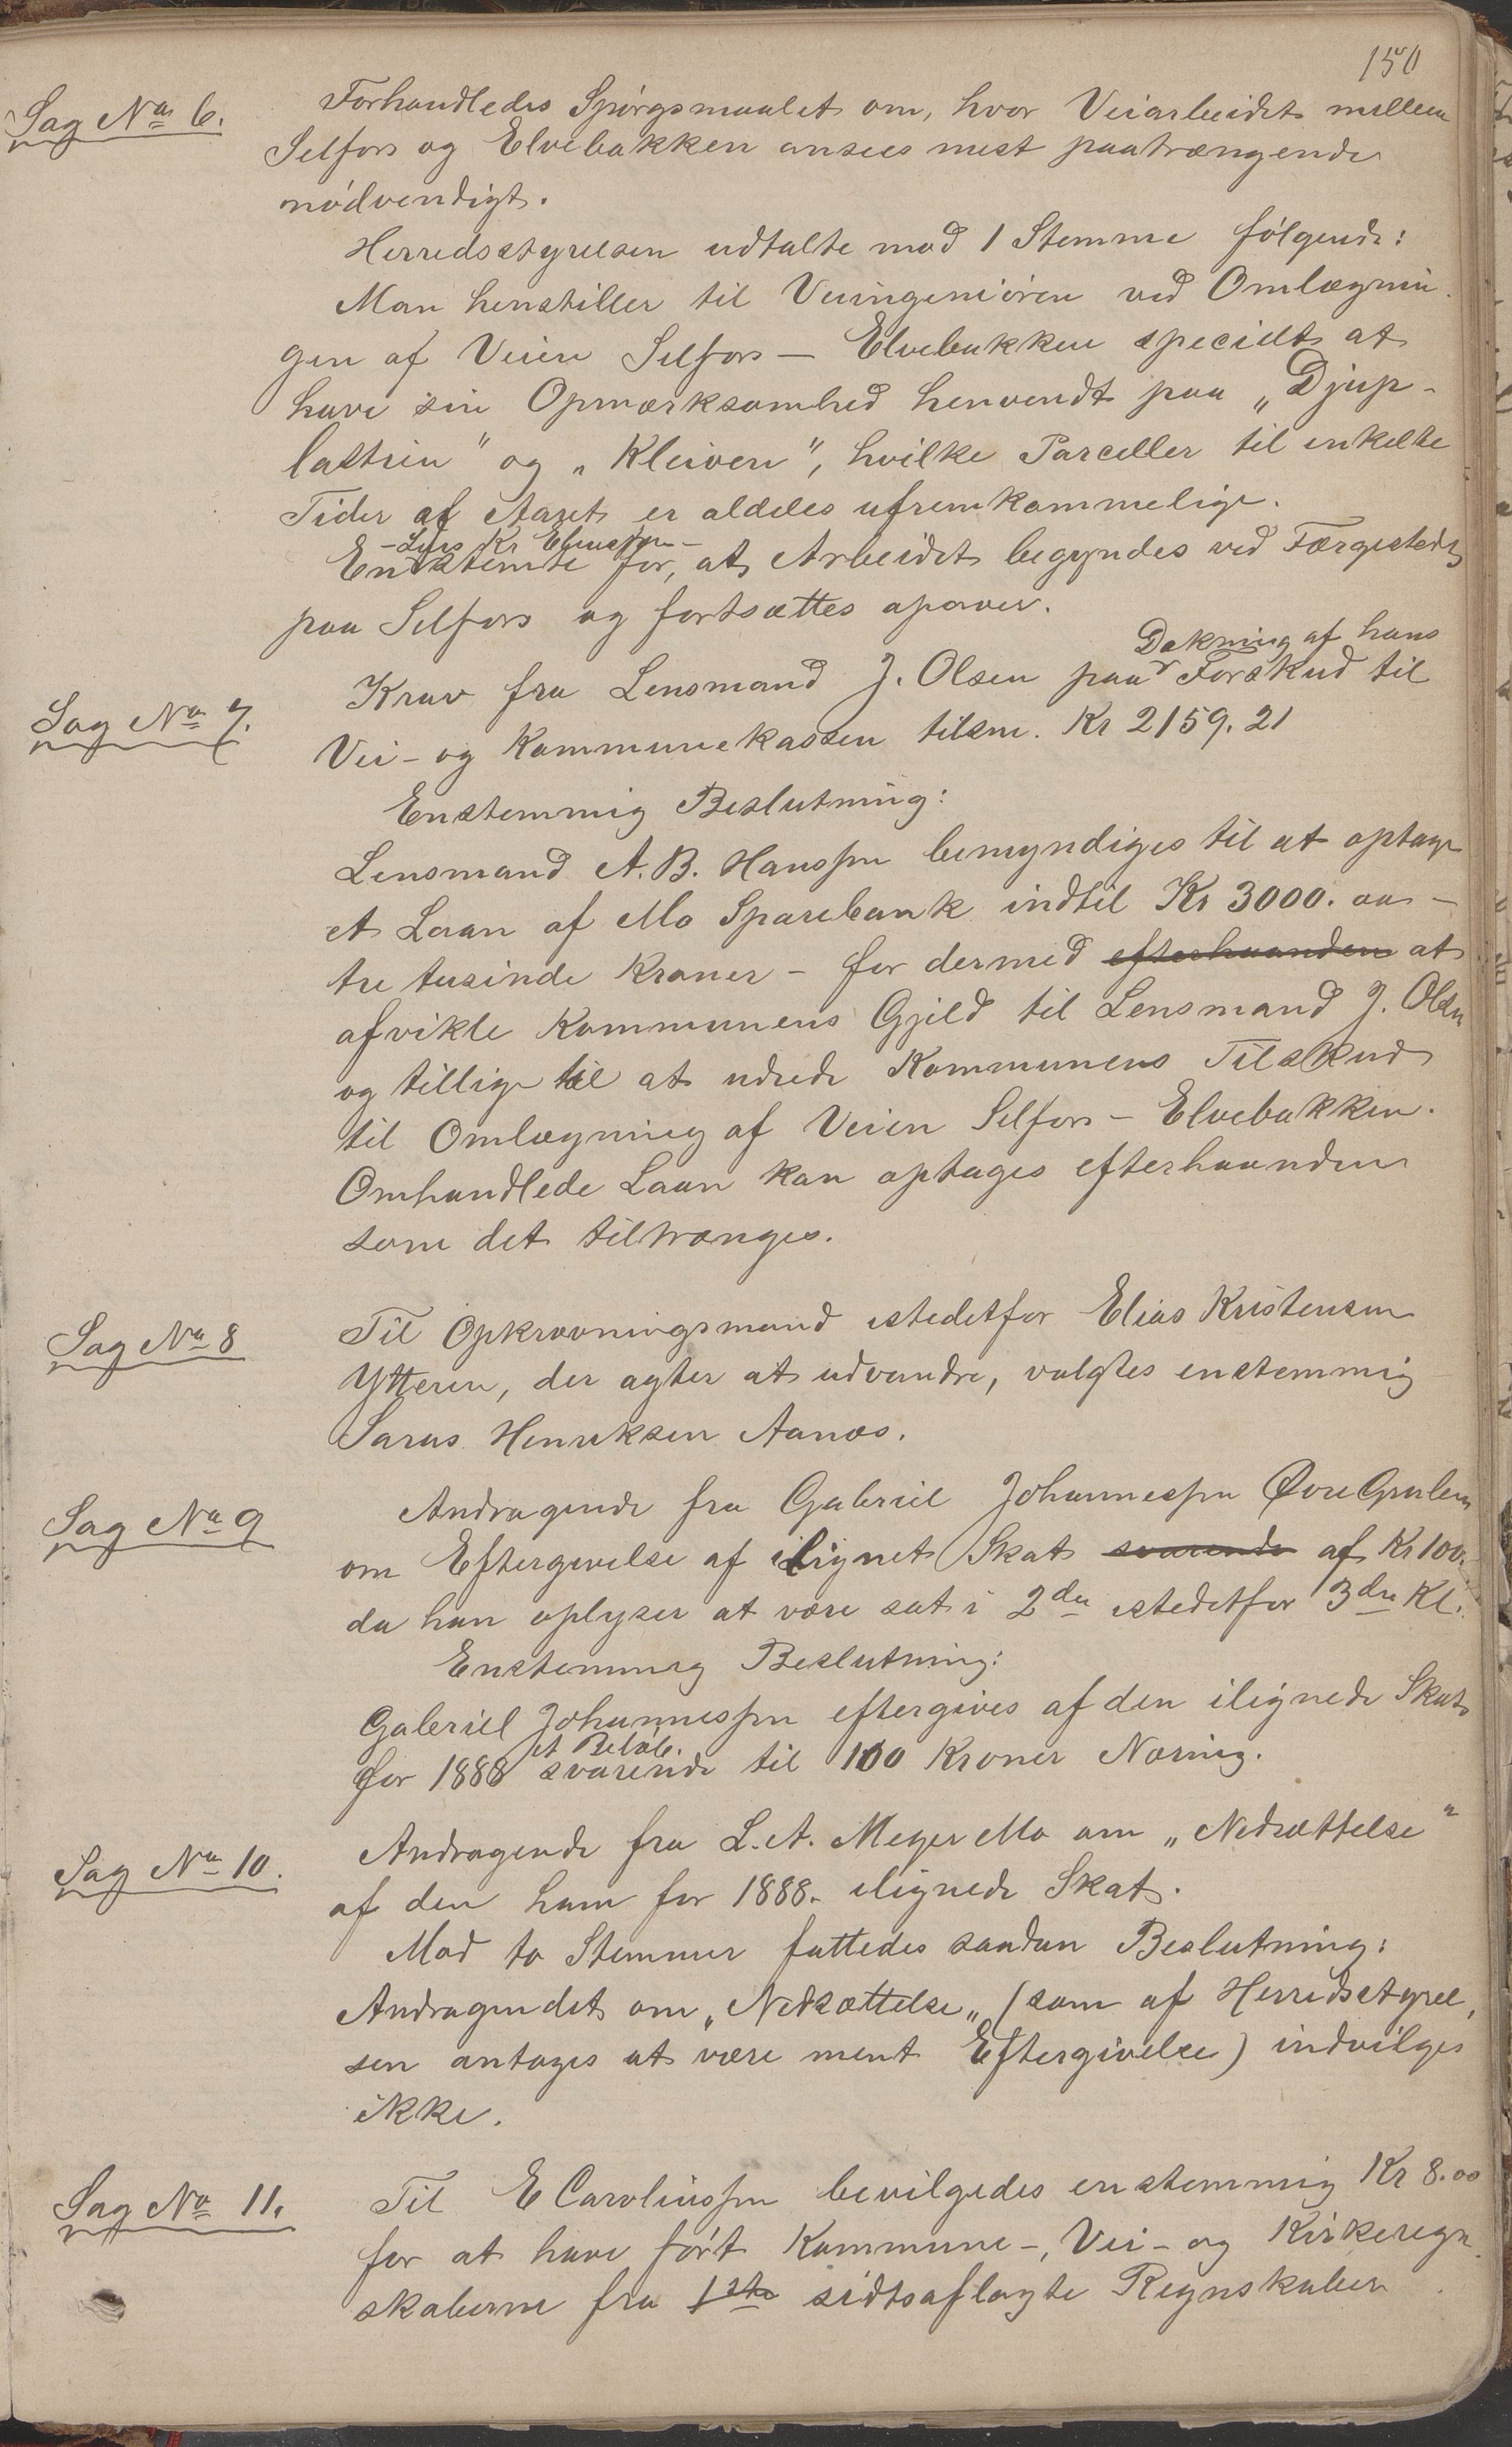 150
Sag No 6.
Forhandledes Spörgsmaalet om, hvor Veiarbeidet mellem
Selfors og Elvebakken ansees mest paatrængende
nödvendigt.
Herredsstyrelsen udtalte mod 1 Stemme fölgende:
Man henstiller til Veiingeniören ved Omlægnin
gen af Veien Selfors — Elvebakken specielt at
have sin Opmærksomhed henvendt paa „Djup-
lastrin" og „Kleiven", hvilke Parceller til enkelte
Tider af Aaret er aldeles ufremkommelige.
- Lars Kr
En stemte for, at Arbeidet begyndes ved Færgestedet
paa Selfors og fortsættes opover.
Sag No 7.
Dækning af hans
Krav fra Lensmand J. Olsen paa Forskud til
Vei- og Kommunekassen tilsm. Kr 2159.21
Enstemmig Beslutning:
Lensmand A. B. Hanssen bemyndiges til at optage
et Laan af Mo Sparebank indtil Kr 3000. oo -
tre tusinde Kroner - for dermed efterhaanden at
afvikle Kommunens Gjeld til Lensmand J. Olsen
og tillige til at udrede Kommunens Tilskud
til Omlægning af Veien Selfors - Elvebakken.
Omhandlede Laan kan optages efterhaanden
som det tiltrænges.
Sag No 8
Til Opkrævningsmand istedetfor Elias Kristensen
Ytteren, der agter at udvandre, valgtes enstemmig
Sarus Henriksen Aanæs.
Sag No 9
Andragende fra Gabriel Johannessen Øvre
om Eftergivelse af ilignet Skat svarende af Kr 100.
da han oplyser at være sat i 2den istedetfor 3die Kl.
Enstemmig Beslutning:
Gabriel Johannessen eftergives af den ilignede Skat
et Belöb.
for 1888 svarende til 100 Kroner Næring.
Sag No 10.
Andragende fra L. A. Meyer Mo om „Nedsættelse"
af den ham for 1888. ilignede Skat.
Mod to Stemmer fattedes saadan Beslutning:
Andragendet om „Nedsættelse„ (som af Herredsstyrel,
sen antages at være ment Eftergivelse) indvilges
ikke.
Sag No 11.
Til E Carolinssen bevilgedes enstemmig Kr 8.oo
for at have fört Kommune-, Vei- og Kirkeregn
skaberne fra 1ste sidtsaflagte Regnskaber